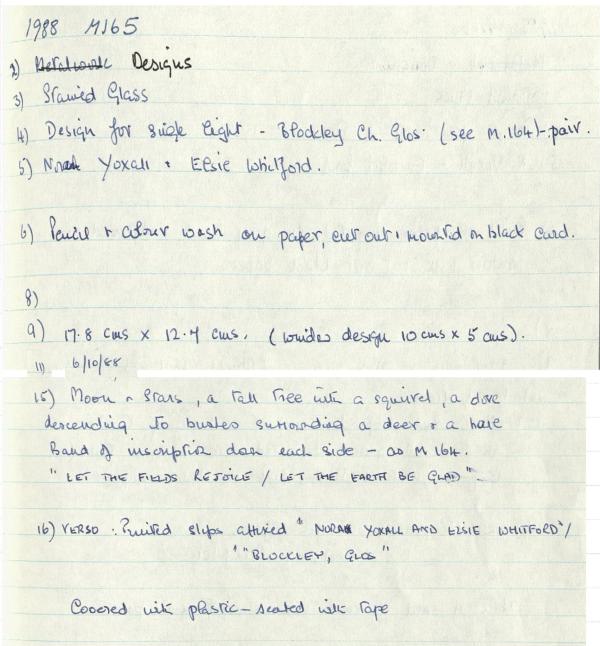 1988 M165
2) Metalwork Designs
3) Stained Glass
4) Design for single light - Blockley Ch. Glos. (see M.164) - pair.
5) Norah Yoxall + Elsie Whitford.
6) Pencil + colour wash on paper, cut out + mounted on black card.
8)
9) 17.8 cms x 12.7 cms. (window design 10 cms x 5 cms).
11) 6/10/88
15) Moon + Stars, a tall tree with a squirrel, a dove
descending to bushes surrounding a deer + a hare
Band of inscription down each side - as M 164.
"LET THE FIELDS REJOICE / LET THE EARTH BE GLAD".
16) VERSO: Printed slips affixed "NORAH YOXALL AND ELSIE WHITFORD"/
"BLOCKLEY, GLOS"
Covered with plastic - sealed with tape